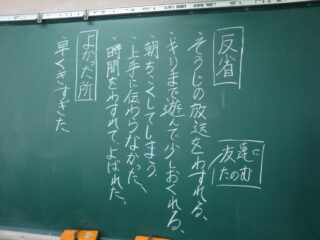 反省
・そうじの放送をわすれる、
友達に
たのむ
・ギリまで遊んで少しおくれる、
・朝ちこくしてしまう、
・上手に伝わらなかった、
・時間をわすれて、よばれた、
よかった所
・早くきすぎた